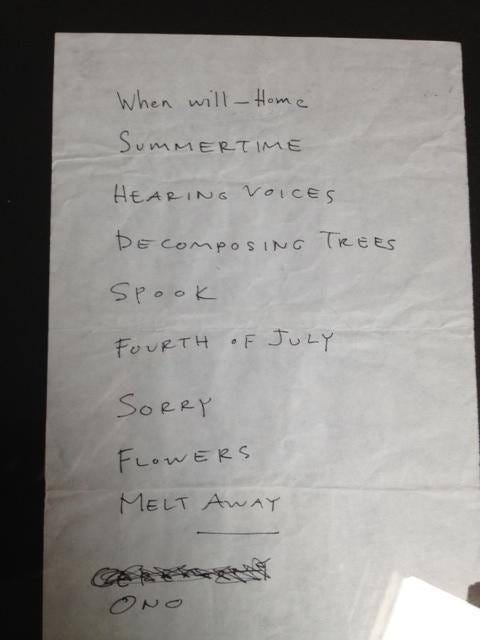 When will – Home
SUMMERTIME
HEARING VOICES
DECOMPOSING TREES
SPOOK
FOURTH OF JULY
SORRY
FLOWERS
MELT AWAY
ONO